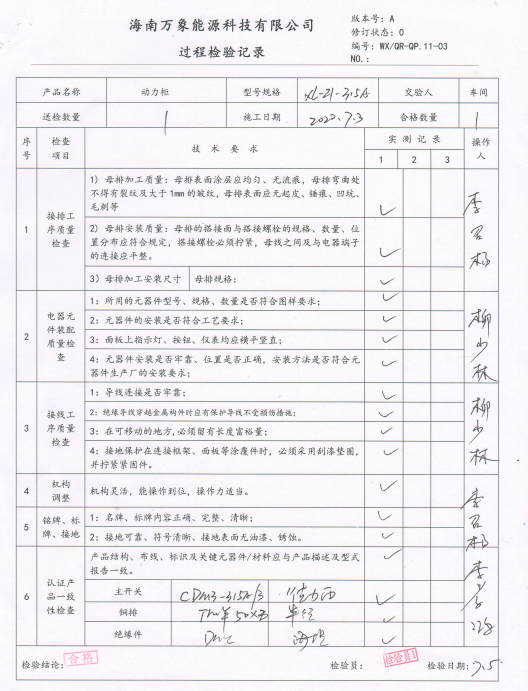 海南万象能源科技有限公司
过程检验记录
版本号：A
修订状态：0
编号：WX/QR-QP.11-03
NO.：
产品名称 动力柜 型号规格 XL-21-315A 交验人 车间
送检数量 1 施工日期 2020.7.3 合格数量 1
序号 检查项目 技术要求 实测记录 操作人
1 2 3
1 接排工序质量检查
1）母排加工质量：母排表面涂层应均匀、无流痕，母排弯曲处
不得有裂纹及大于1mm的皱纹，母排表面应无起皮、锤痕、凹坑、
毛刺等
2）母排安装质量：母排的搭接面与搭接螺栓的规格、数量、位
置分布应符合规定，搭接螺栓必须拧紧，母线之间及与电器端子
的连接应平整。
3）母排加工安装尺寸 母排规格：
2 电器元件装配质量检查
1：所用的元器件型号、规格、数量是否符合图样要求；
2：元器件的安装是否符合工艺要求；
3：面板上指示灯、按钮、仪表均应横平竖直；
4：元器件安装是否牢靠、位置是否正确，安装方法是否符合元
器件生产厂的安装要求；
柳少林
3 接线工序质量检查
1：导线连接是否牢靠；
2：绝缘导线穿越金属构件时应有保护导线不受损伤措施；
3：在可移动的地方，必须留有长度富裕量；
4：接地保护在连接框架、面板等涂覆件时，必须采用刮漆垫圈，
并拧紧紧固件。
柳少林
4 机构调整 机构灵活，能操作到位，操作力适当。
5 铭牌、标牌、接地
1：名牌、标牌内容正确、完整、清晰；
2：接地可靠、符号清晰、接地表面无油漆、锈蚀。
6 认证产品一致性检查
产品结构、布线、标识及关键元器件/材料应与产品描述及型式
报告一致。
主开关 CDM3-315A/3 德力西
铜排
绝缘件 DMC
检验结论：合格 检验员：检验员1 检验日期：7.5